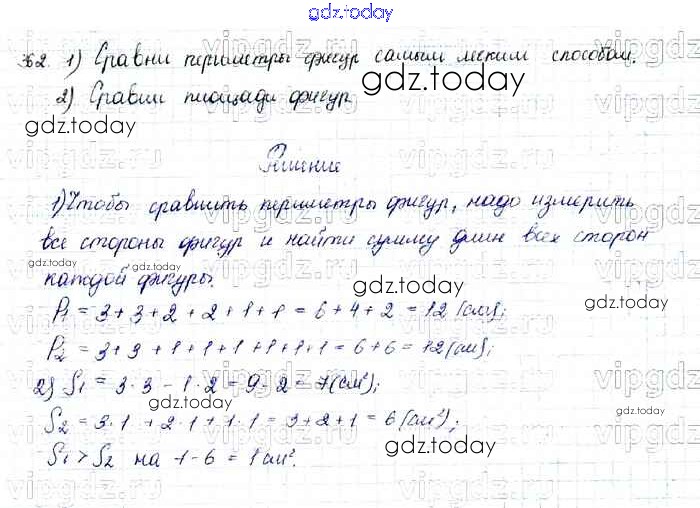 gdz.today
362. 1) Сравни периметры фигур самым легким способом.
gdz.today
2) Сравни площади фигур
gdz.today
Решение
1) Чтобы сравнить периметры фигур, надо измерить
все стороны фигур и найти сумму длин всех сторон
gdz.today gdz.today
каждой фигуры.
P1 = 3+3+2+2+1+1 = 6+4+2 = 12 (см);
gdz.today
P2 = 3+3+1+1+1+1+1+1 = 6+6 = 12 (см);
2) S1 = 3·3 - 1·2 = 9-2 = 7 (см²);
gdz.today
S2 = 3·1 + 2·1 + 1·1 = 3+2+1 = 6 (см²);
gdz.today
S1 > S2 на 7-6 = 1 см².
vipgdz.ru